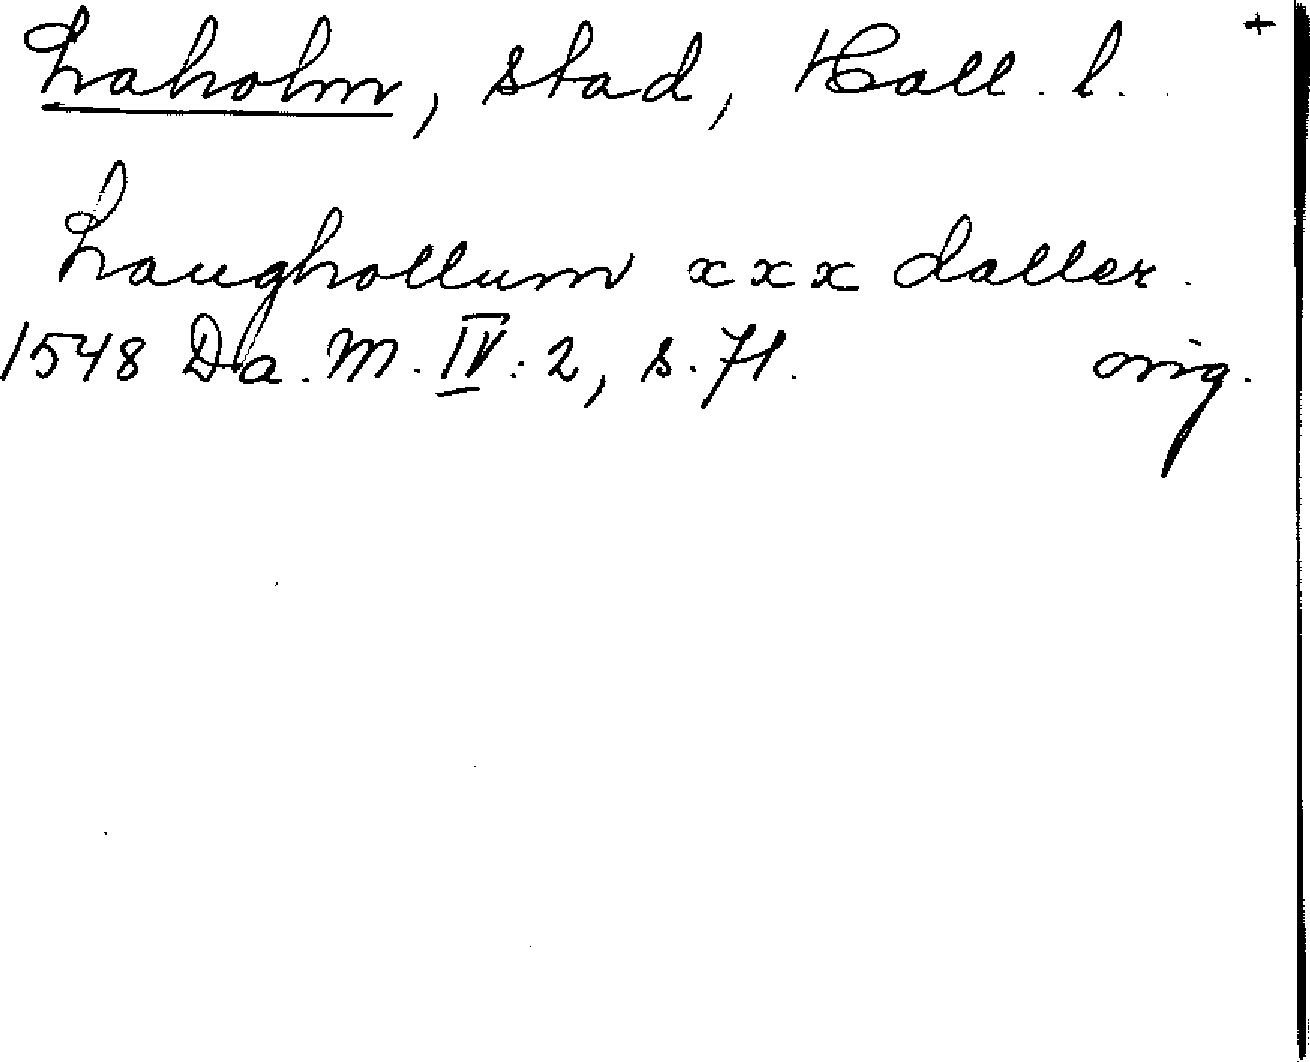 Laholm, stad, Hall. l. +
Laughollum xxx daller.
1548 Da. M. IV: 2, s. 71. orig.